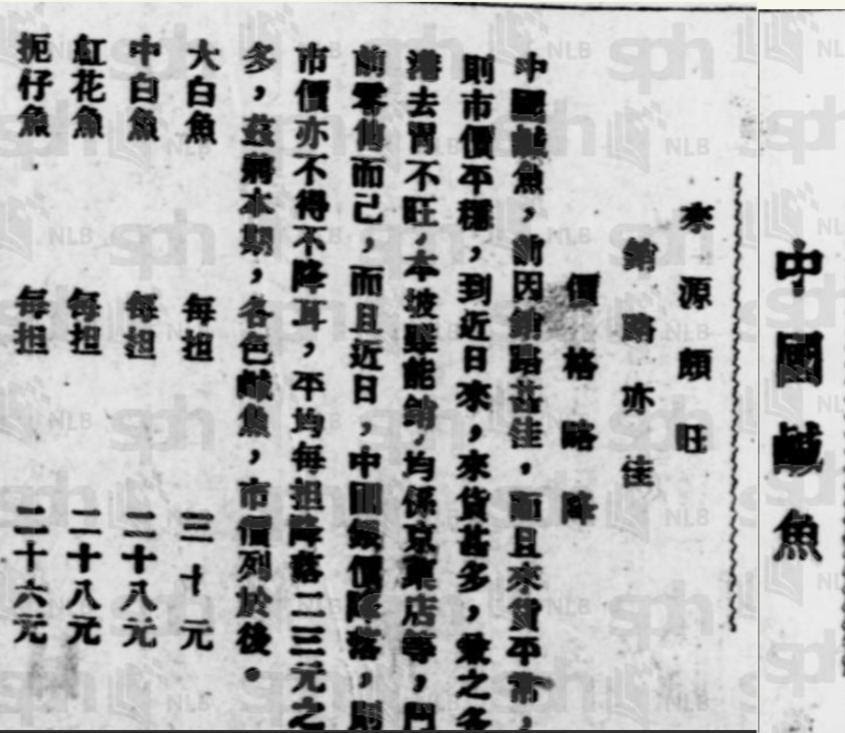 中國鹹魚
來源頗旺
銷路亦佳
價格略降
中國鹹魚，前因銷路甚佳，而且來貨平常，
則市價平穩，到近日來，來貨甚多，兼之各
港去胃不旺，本坡雖能銷，均係京菓店等，門
前零售而己，而且近日，中國價降落，則
市價亦不得不降耳，平均每担降落二三元之
多，茲將本期，各色鹹魚，市價列於後。
大白魚 每担 三十元
中白魚 每担 二十八元
紅花魚 每担 二十八元
扼仔魚 每担 二十六元